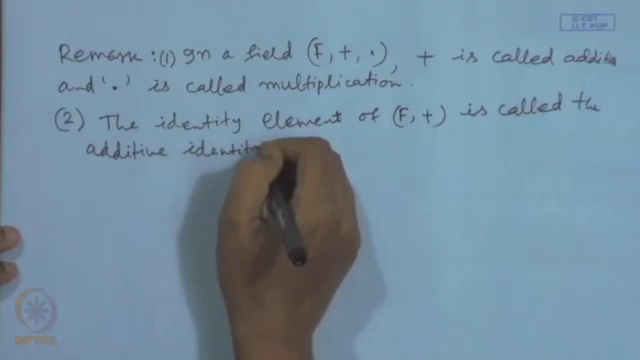 Remark :(1) In a field (F, +, ·), + is called additio
and '·' is called multiplication.
(2) The identity element of (F, +) is called the
additive identity
© CET
I.I.T. KGP
NPTEL